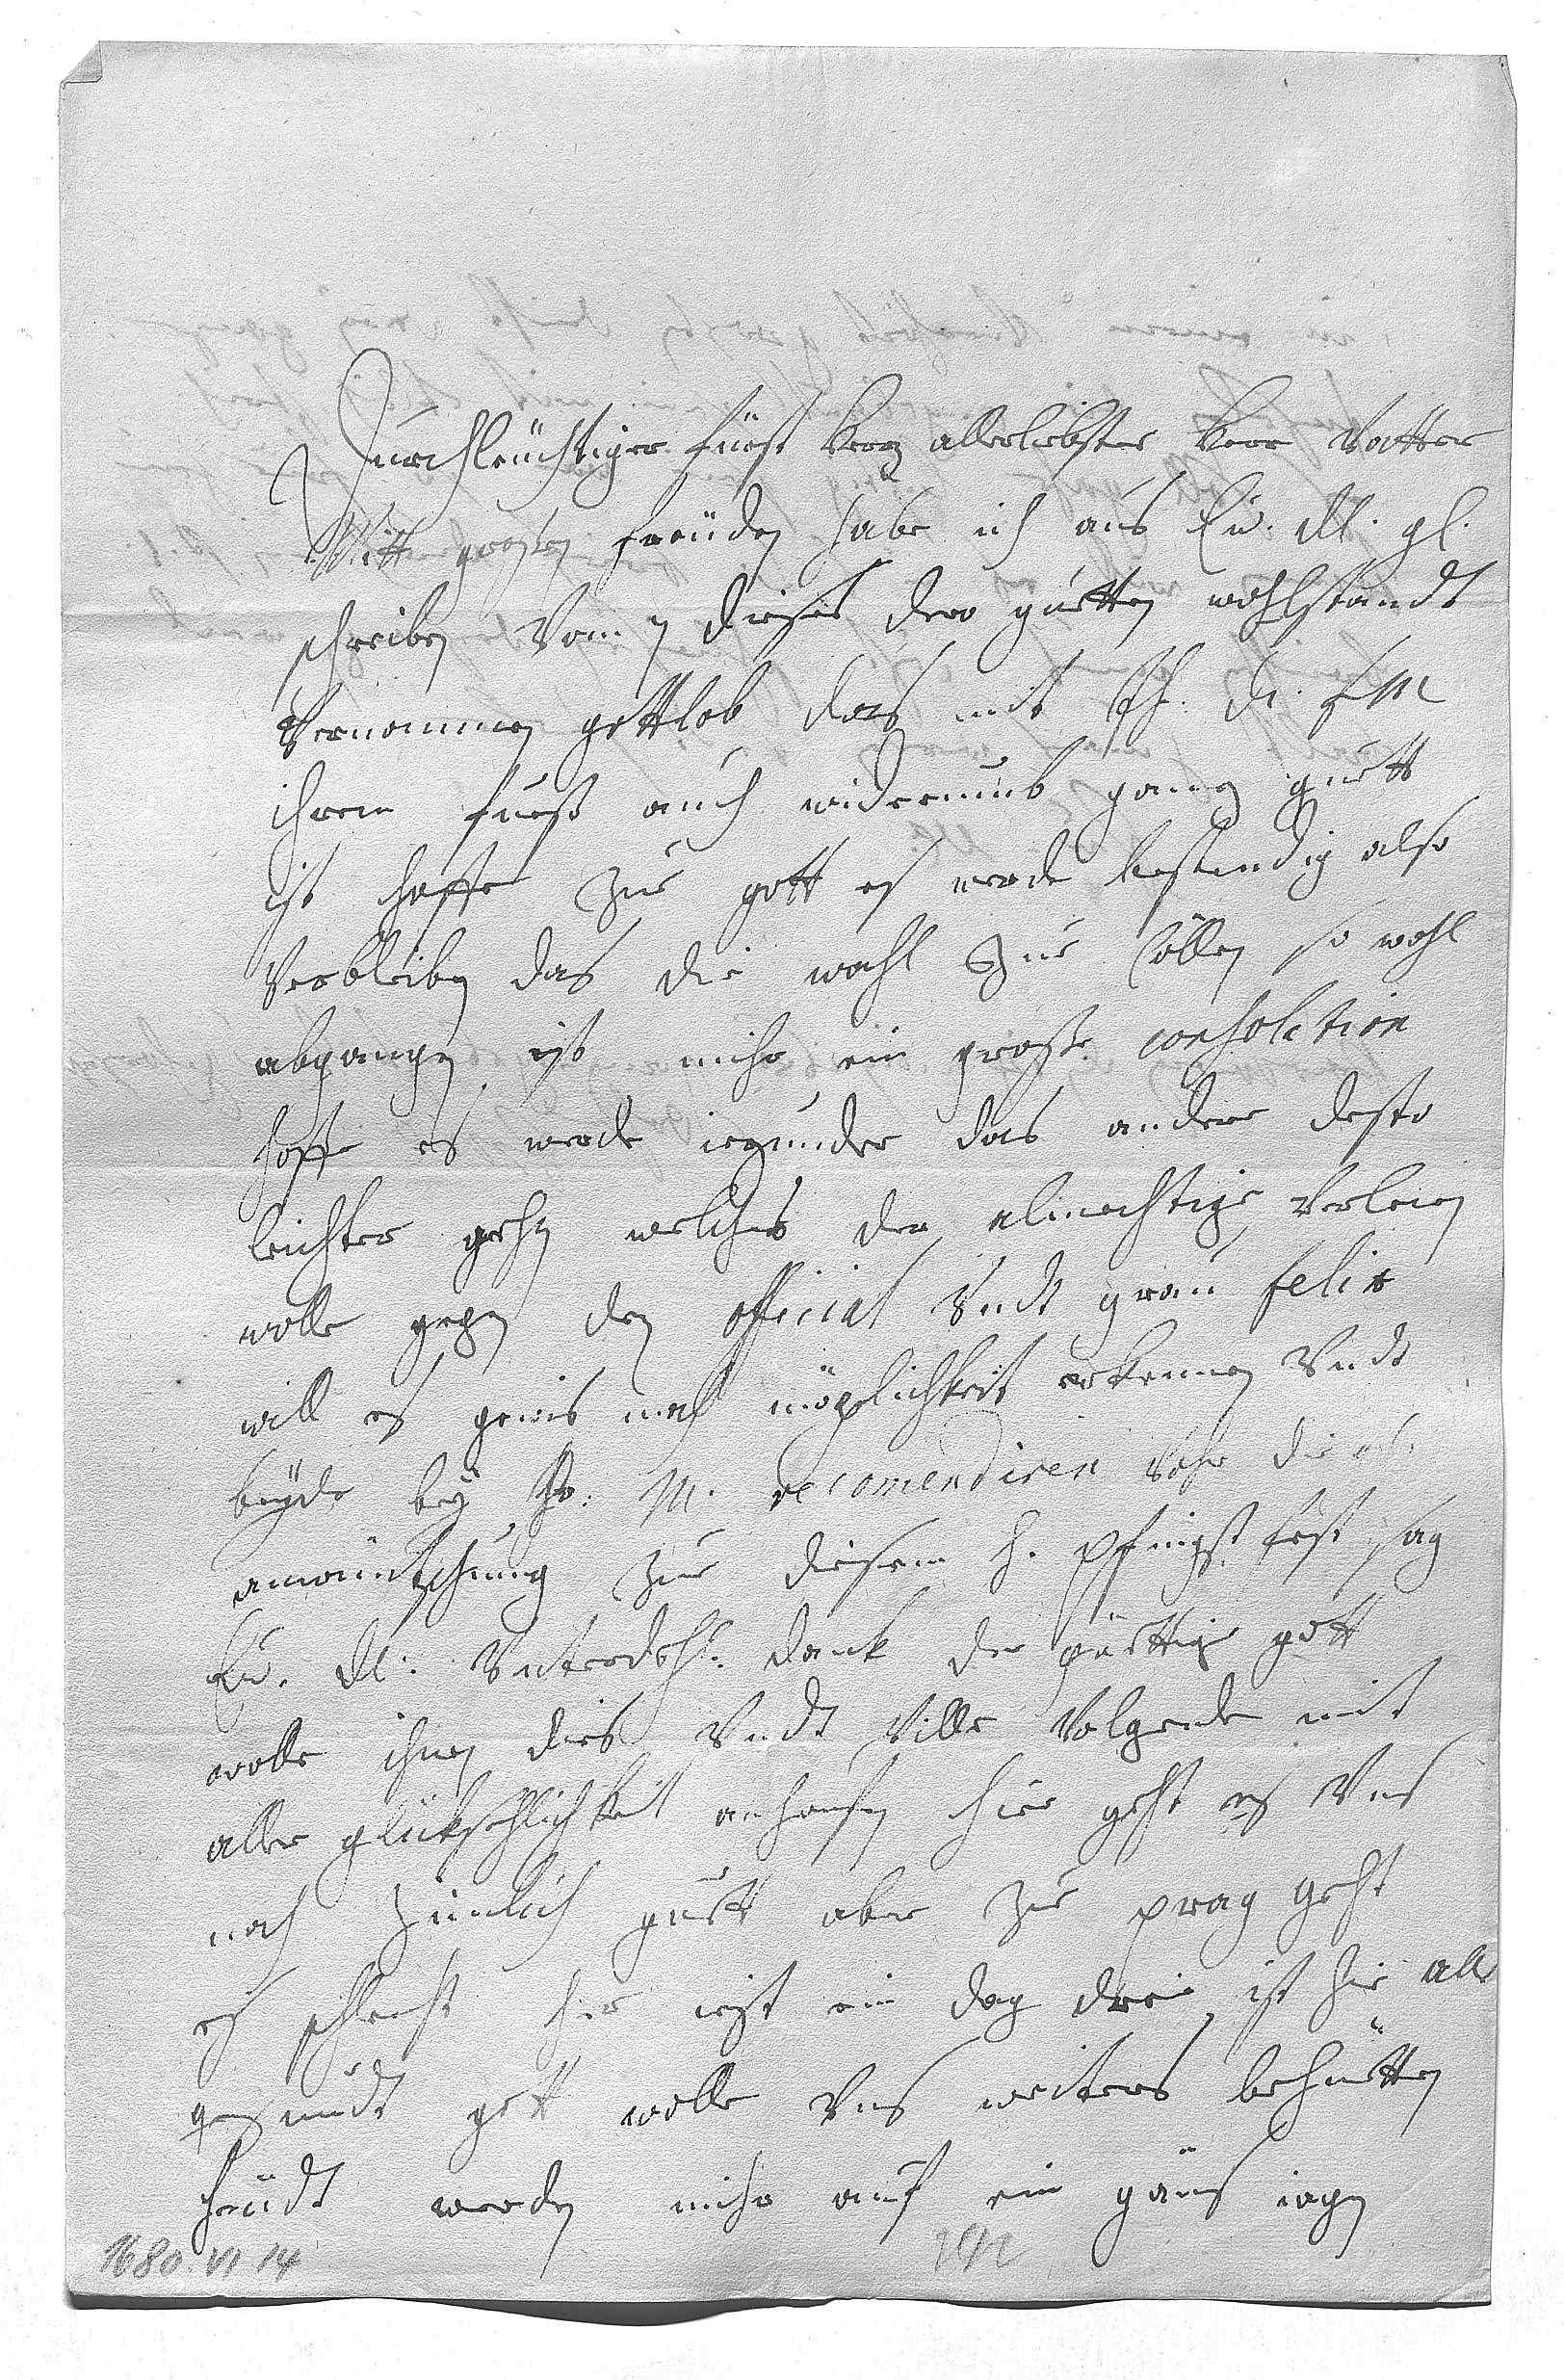 Durchleüchtiger fürst herz allerliebster herr Vatter
Mitt grosen freüden habe ich aus Eu. dl. gl.
schreiben Vom 7 dieses dero gutten wohlstandt
Vernommen gottlob das mit Ih. dl.
ihrem fues auch widerumb ganz gutt
ist hoffe zu gott es werde bestendig also
Verbleiben das die wahl zu Cöllen so wohl
abgangen ist mihr ein grosse consolation
hoffe es werde iezunder das andere desto
leichter gehen welches der almechtige Verleien
wolle gegen den official Vndt felix
will es gewis nach möglichkeit erkennen Vndt
beyde bey Ih. M. recomendiren Vohr die
anwüntschung zu diesem h. Pfingst fest sag
Eu. dl. dank der güettige gott
wolle ihnen dies Vndt Ville Volgende mit
aller glückseligkeit hier geht es Vns
noch zimlich gutt aber zu prag geht
es schlecht iezt ein dag drei ist hie alles
gesundt gott wolle Vns weiters behütten
heüdt werden mihr auf ein gäns iagen
1680 VI 14